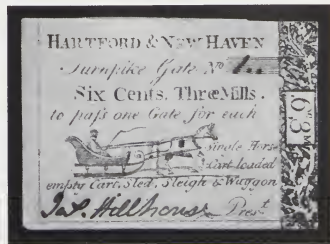 HARTFORD & NEW HAVEN
Turnpike Gate No
Six Cents. Three Mills.
to pass one Gate for each
Single Horse
Cart loaded
empty Cart. Sled, Sleigh & Waggon
Jas. Hillhouse Prest.